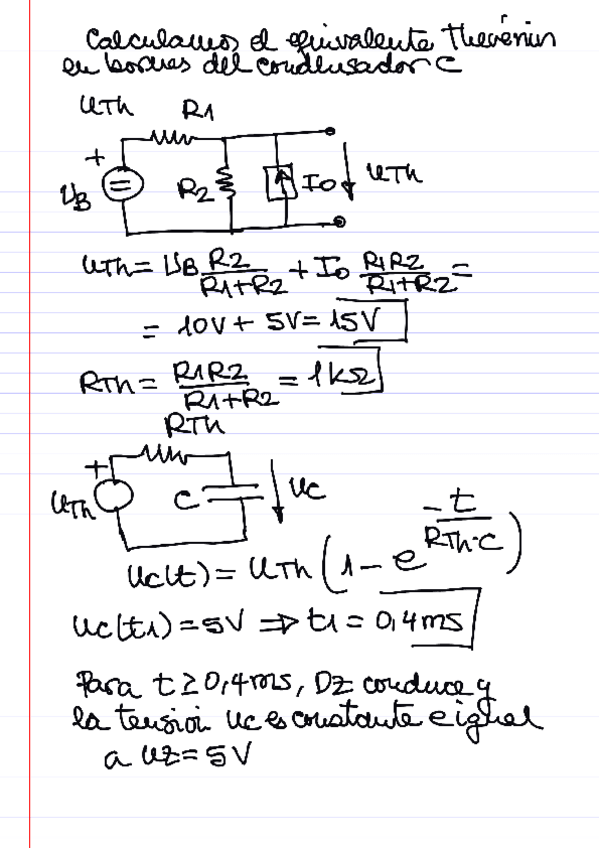 Calculamos el equivalente Thevénin
en bornes del condensador C
UTh
R1
+
UB
R2
Io
UTh
UTh = UB R2/(R1+R2) + Io R1R2/(R1+R2) =
= 10V + 5V = 15V
RTh = R1R2/(R1+R2) = 1kΩ
RTh
+
UTh
C
uc
uc(t) = UTh (1 - e^(-t/(RTh·C)))
uc(t1) = 5V ⇒ t1 = 0,4ms
Para t ≥ 0,4ms, Dz conduce y
la tensión uc es constante e igual
a Uz = 5V